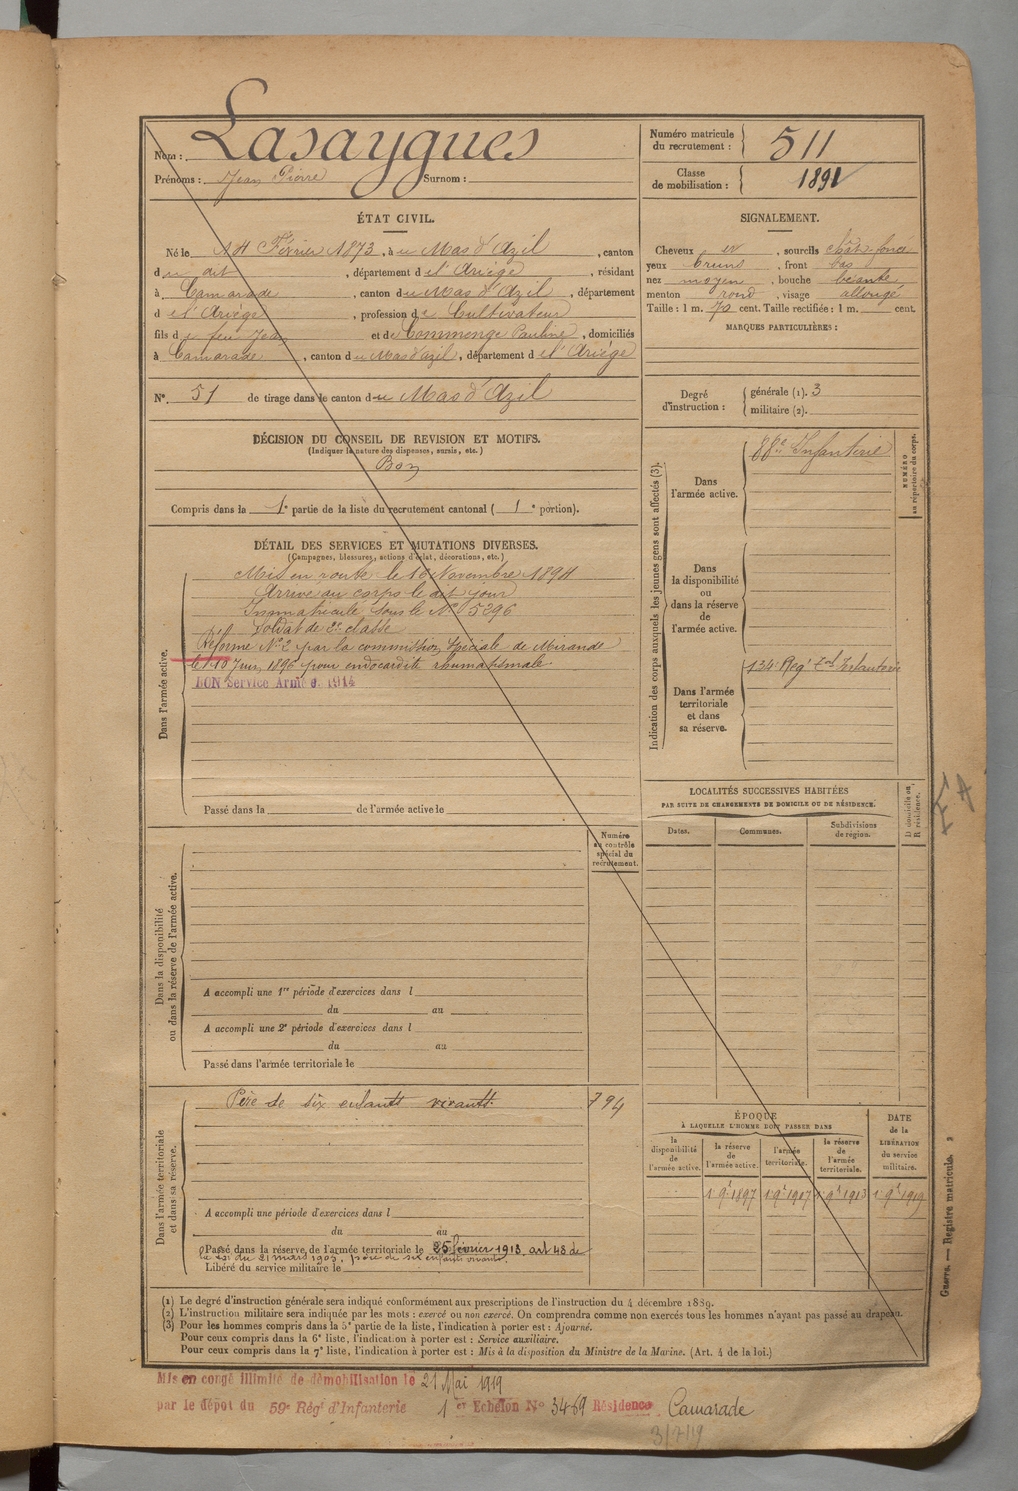 Nom : Lasaygues
Prénoms : Jean Pierre Surnom :
Numéro matricule du recrutement : 511
Classe de mobilisation : 1891
ÉTAT CIVIL.
Né le 14 Février 1873, à u Mas d'Azil, canton
du dit, département de l'Ariège, résidant
à Camarade, canton du Mas d'Azil, département
de l'Ariège, profession de Cultivateur
fils de feu Jean et de Commenge Pauline, domiciliés
à Camarade, canton du Mas d'azil, département de l'Ariège
N° 51 de tirage dans le canton du Mas d'Azil
DÉCISION DU CONSEIL DE REVISION ET MOTIFS.
(Indiquer la nature des dispenses, sursis, etc.)
Bon
Compris dans la 1e partie de la liste du recrutement cantonal ( 1e portion).
SIGNALEMENT.
Cheveux et, sourcils chât. foncé
yeux bruns, front bas
nez moyen, bouche béante
menton rond, visage allongé
Taille : 1 m. 70 cent. Taille rectifiée : 1 m. cent.
MARQUES PARTICULIÈRES :
Degré d'instruction : générale (1). 3
militaire (2).
DÉTAIL DES SERVICES ET MUTATIONS DIVERSES.
(Campagnes, blessures, actions d'éclat, décorations, etc.)
Dans l'armée active.
Mis en route le 16 Novembre 1894
Arrivé au corps le dit jour
Immatriculé sous le N° 5296
Soldat de 2e classe
Réformé N° 2 par la commission spéciale de Mirande
le 18 Juin 1896 pour endocardite rhumatismale
BON Service Armé. 1914
Passé dans la de l'armée active le
Indication des corps auxquels les jeunes gens sont affectés (3).
NUMÉRO au répertoire du corps.
Dans l'armée active.
88e Infanterie
Dans la disponibilité ou dans la réserve de l'armée active.
Dans l'armée territoriale et dans sa réserve.
134e Regt Tal Infanterie
LOCALITÉS SUCCESSIVES HABITÉES
PAR SUITE DE CHANGEMENTS DE DOMICILE OU DE RÉSIDENCE.
Dates. Communes. Subdivisions de région. D. domicile ou R. résidence.
Dans la disponibilité ou dans la réserve de l'armée active.
Numéro au contrôle spécial du recrutement.
A accompli une 1re période d'exercices dans l
du au
A accompli une 2e période d'exercices dans l
du au
Passé dans l'armée territoriale le
Dans l'armée territoriale et dans sa réserve.
Père de six enfants vivants. 794
A accompli une période d'exercices dans l
du au
Passé dans la réserve de l'armée territoriale le 25 février 1913, art 48 de
la loi du 21 mars 1905, père de six enfants vivants.
Libéré du service militaire le
ÉPOQUE
À LAQUELLE L'HOMME DOIT PASSER DANS
DATE de la LIBÉRATION du service militaire.
la disponibilité de l'armée active. la réserve de l'armée active. l'armée territoriale. la réserve de l'armée territoriale.
1 9e 1897 1 9e 1907 1 9e 1913 1 9e 1919
(1) Le degré d'instruction générale sera indiqué conformément aux prescriptions de l'instruction du 4 décembre 1889.
(2) L'instruction militaire sera indiquée par les mots : exercé ou non exercé. On comprendra comme non exercés tous les hommes n'ayant pas passé au drapeau.
(3) Pour les hommes compris dans la 5e partie de la liste, l'indication à porter est : Ajourné.
Pour ceux compris dans la 6e liste, l'indication à porter est : Service auxiliaire.
Pour ceux compris dans la 7e liste, l'indication à porter est : Mis à la disposition du Ministre de la Marine. (Art. 4 de la loi.)
Guerre. — Registre matricule.
Mis en congé illimité de démobilisation le 21 Mai 1919
par le dépôt du 59e Régt d'Infanterie 1er Echelon N° 3469 Résidence Camarade
3/7/19